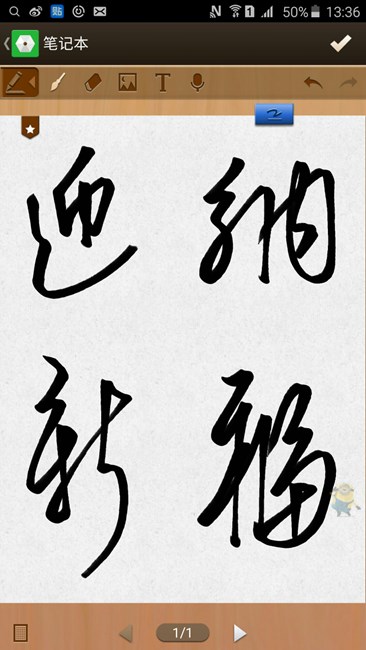 50% 13:36
笔记本
迎 纳
新 福
1/1